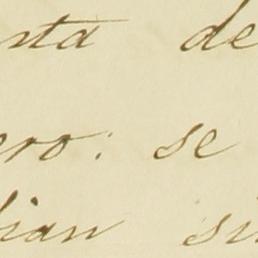 sta de
ero: se
ian si